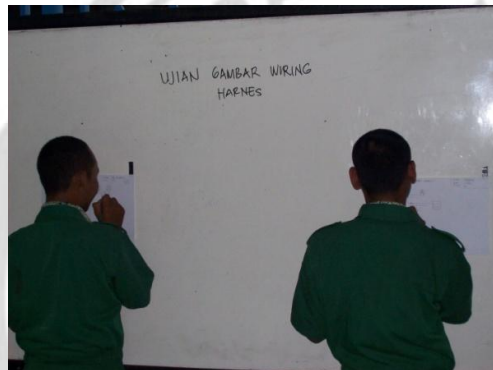 UJIAN GAMBAR WIRING
HARNES